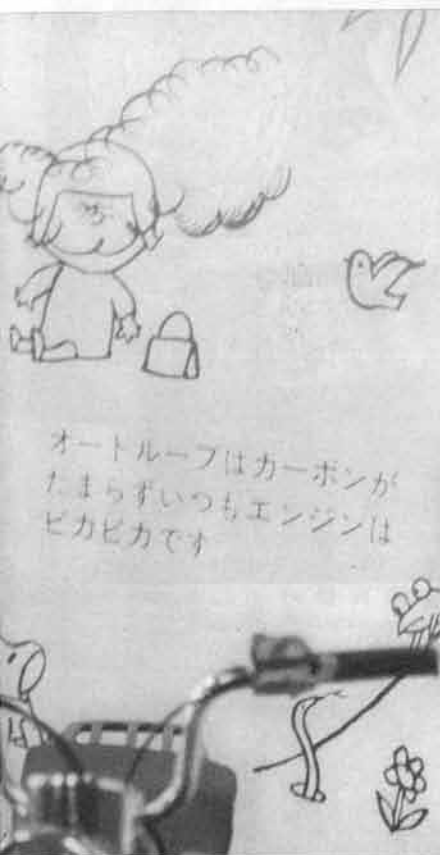 オートルーブはカーボンが
たまらずいつもエンジンは
ピカピカです